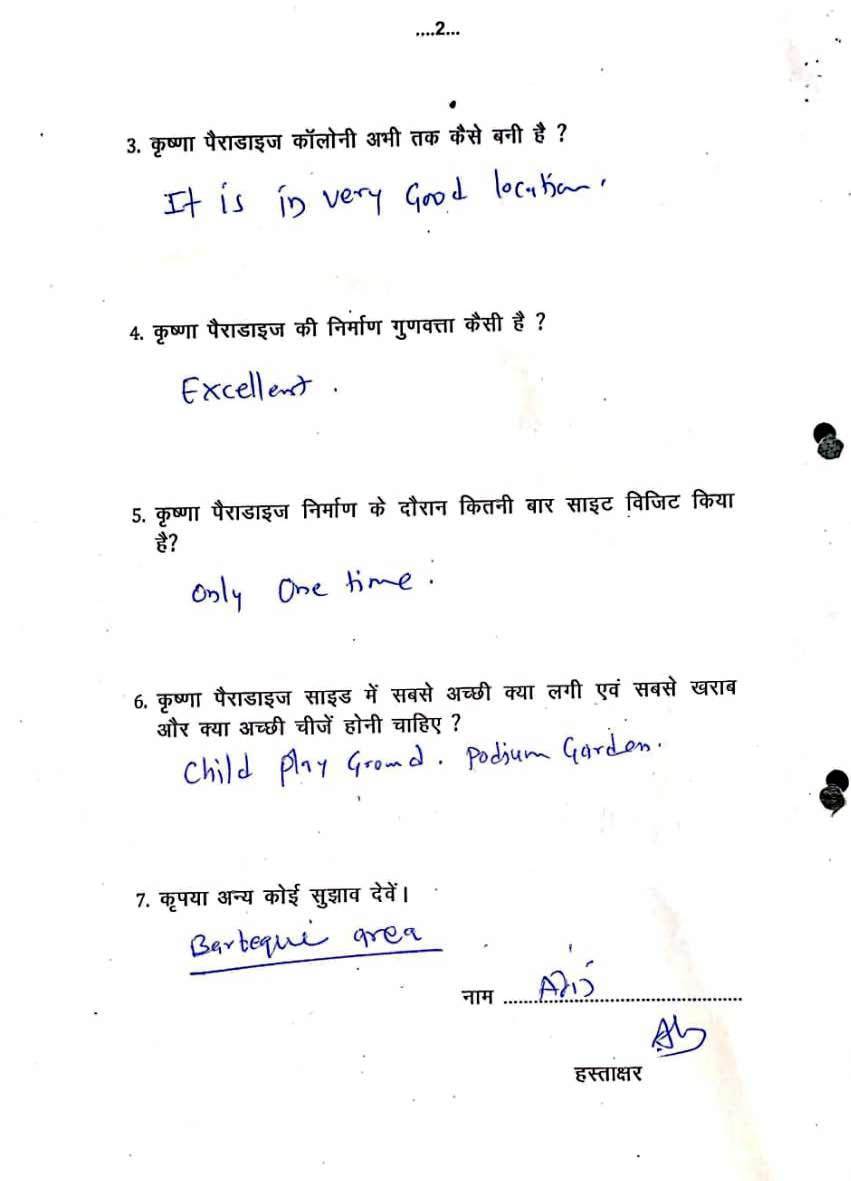 ....2...
3. कृष्णा पैराडाइज कॉलोनी अभी तक कैसे बनी है ?
It is in very Good location.
4. कृष्णा पैराडाइज की निर्माण गुणवत्ता कैसी है ?
Excellent .
5. कृष्णा पैराडाइज निर्माण के दौरान कितनी बार साइट विजिट किया
है?
only One time.
6. कृष्णा पैराडाइज साइड में सबसे अच्छी क्या लगी एवं सबसे खराब
और क्या अच्छी चीजें होनी चाहिए ?
Child Play Ground. Podium Garden.
7. कृपया अन्य कोई सुझाव देवें।
Barbeque area
नाम ..........................................
हस्ताक्षर